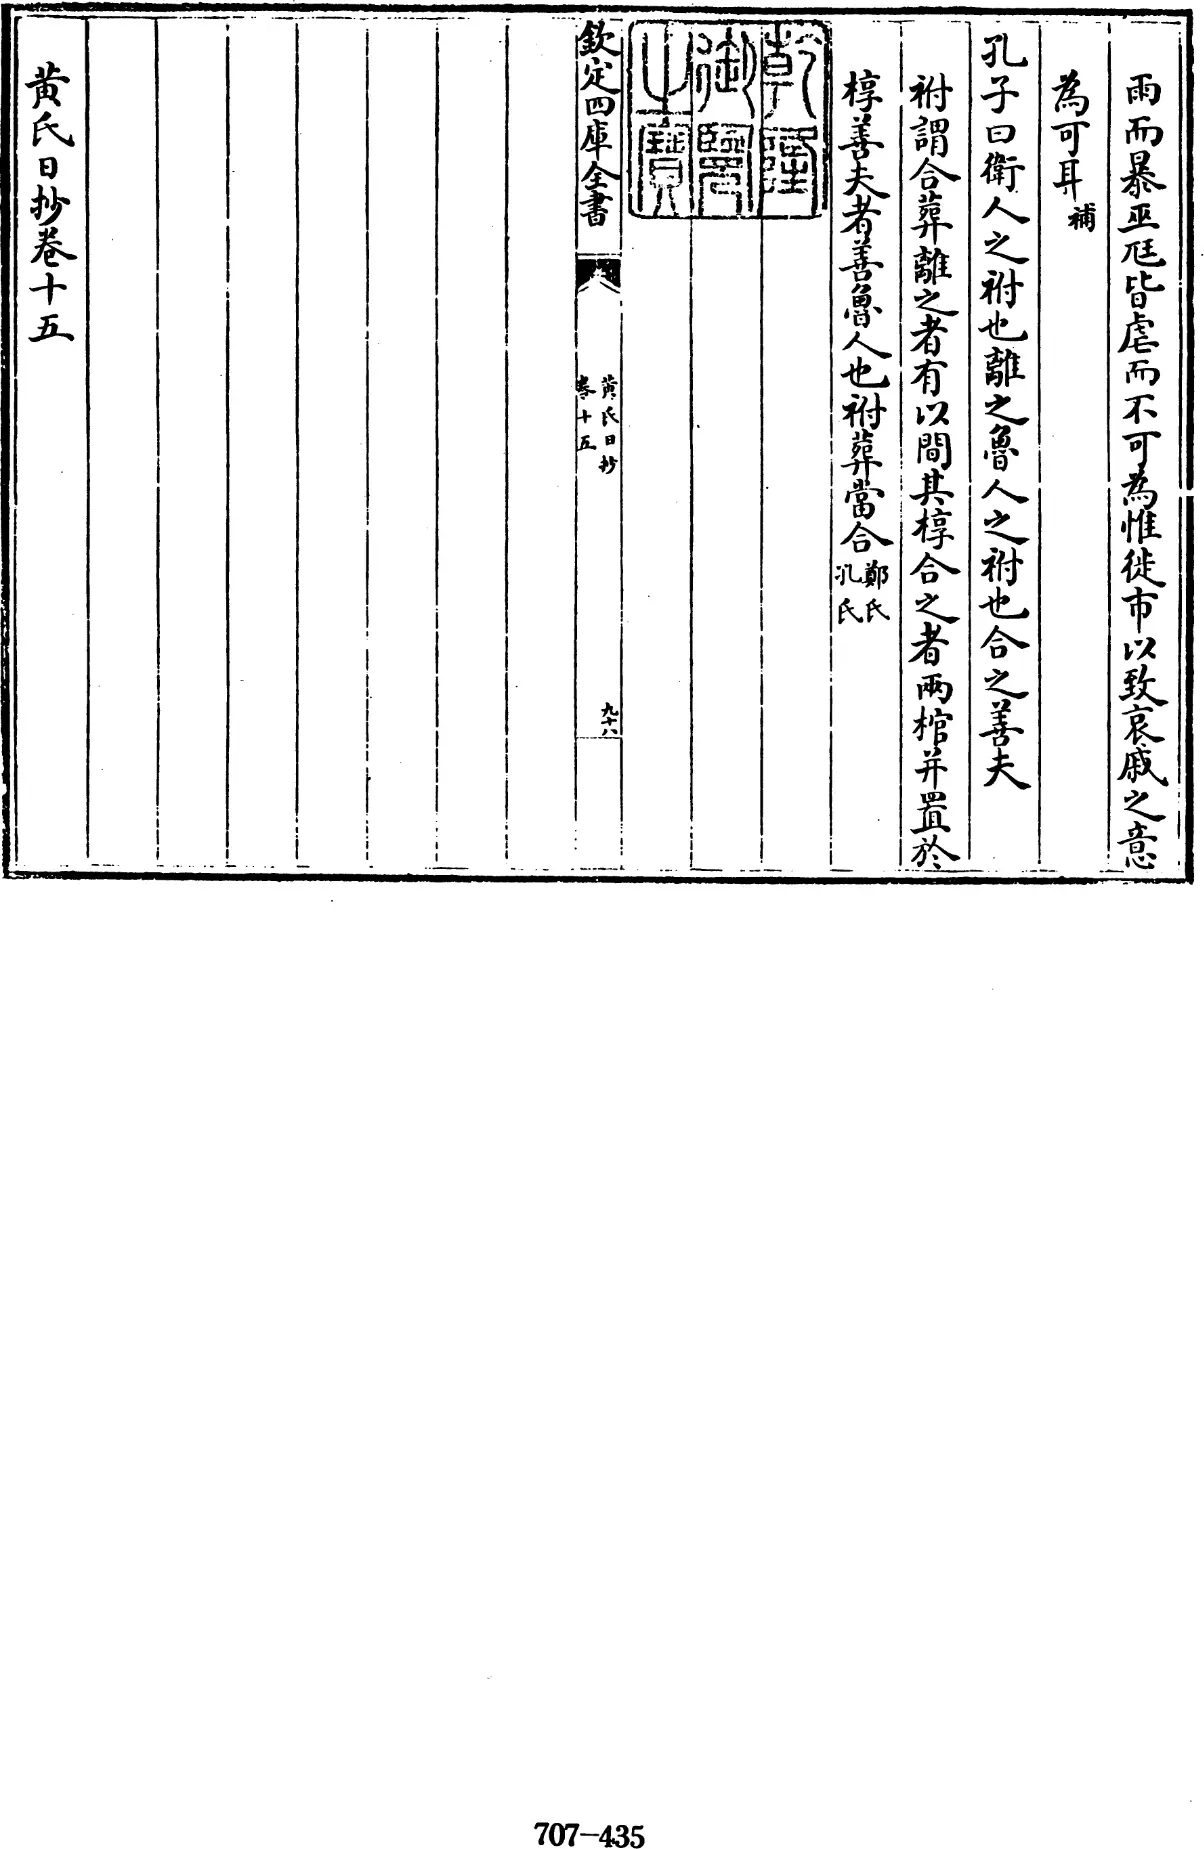 雨而暴巫尫皆虐而不可為惟徙市以致哀戚之意
為可耳補
孔子曰衛人之祔也離之魯人之祔也合之善夫
祔謂合葬離之者有以間其椁合之者兩棺并置於
椁善夫者善魯人也祔葬當合鄭氏孔氏
乾隆御覽之寶
欽定四庫全書
黄氏日抄
卷十五
九十八
黄氏日抄卷十五
707-435